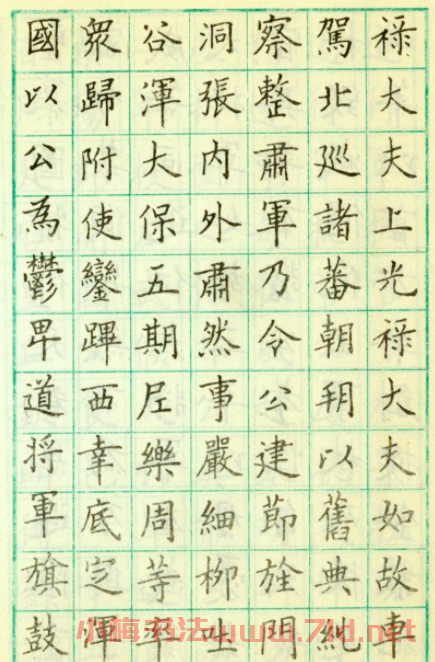 祿大夫上光祿大夫如故車
駕北巡諸蕃朝朔以舊典糺
察整肅軍乃令公建節旌門
洞張内外肅然事嚴細柳吐
谷渾大保五期尼樂周等率
衆歸附使鑾蹕西幸底定渾
國以公為鬱卑道将軍旗鼓
小梅书法www.7ld.net